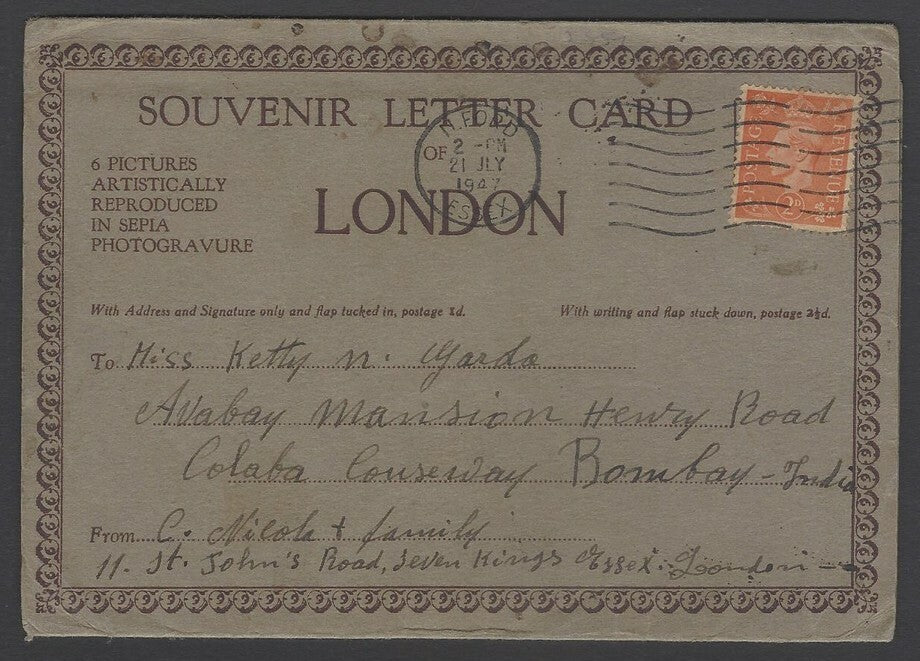 SOUVENIR LETTER CARD
OF
LONDON
6 PICTURES
ARTISTICALLY
REPRODUCED
IN SEPIA
PHOTOGRAVURE
ILFORD
2 - PM
21 JLY
1947
ESSEX
POSTAGE
REVENUE
2D
With Address and Signature only and flap tucked in, postage 1d.
With writing and flap stuck down, postage 2½d.
To Miss Ketty N. Garda
Avabay Mansion Henry Road
Colaba Couseway Bombay - India
From C. Nicola + family
11. St. John's Road, Seven Kings Essex. London